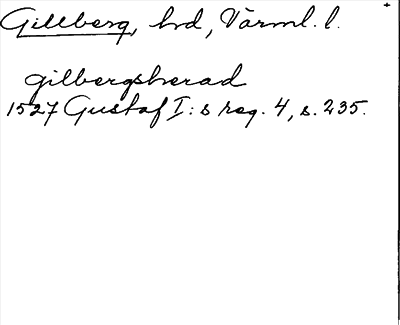 Gillberg, hrd, Värml. l.
gilbergsherad
1527 Gustaf I:s reg. 4, s. 235.